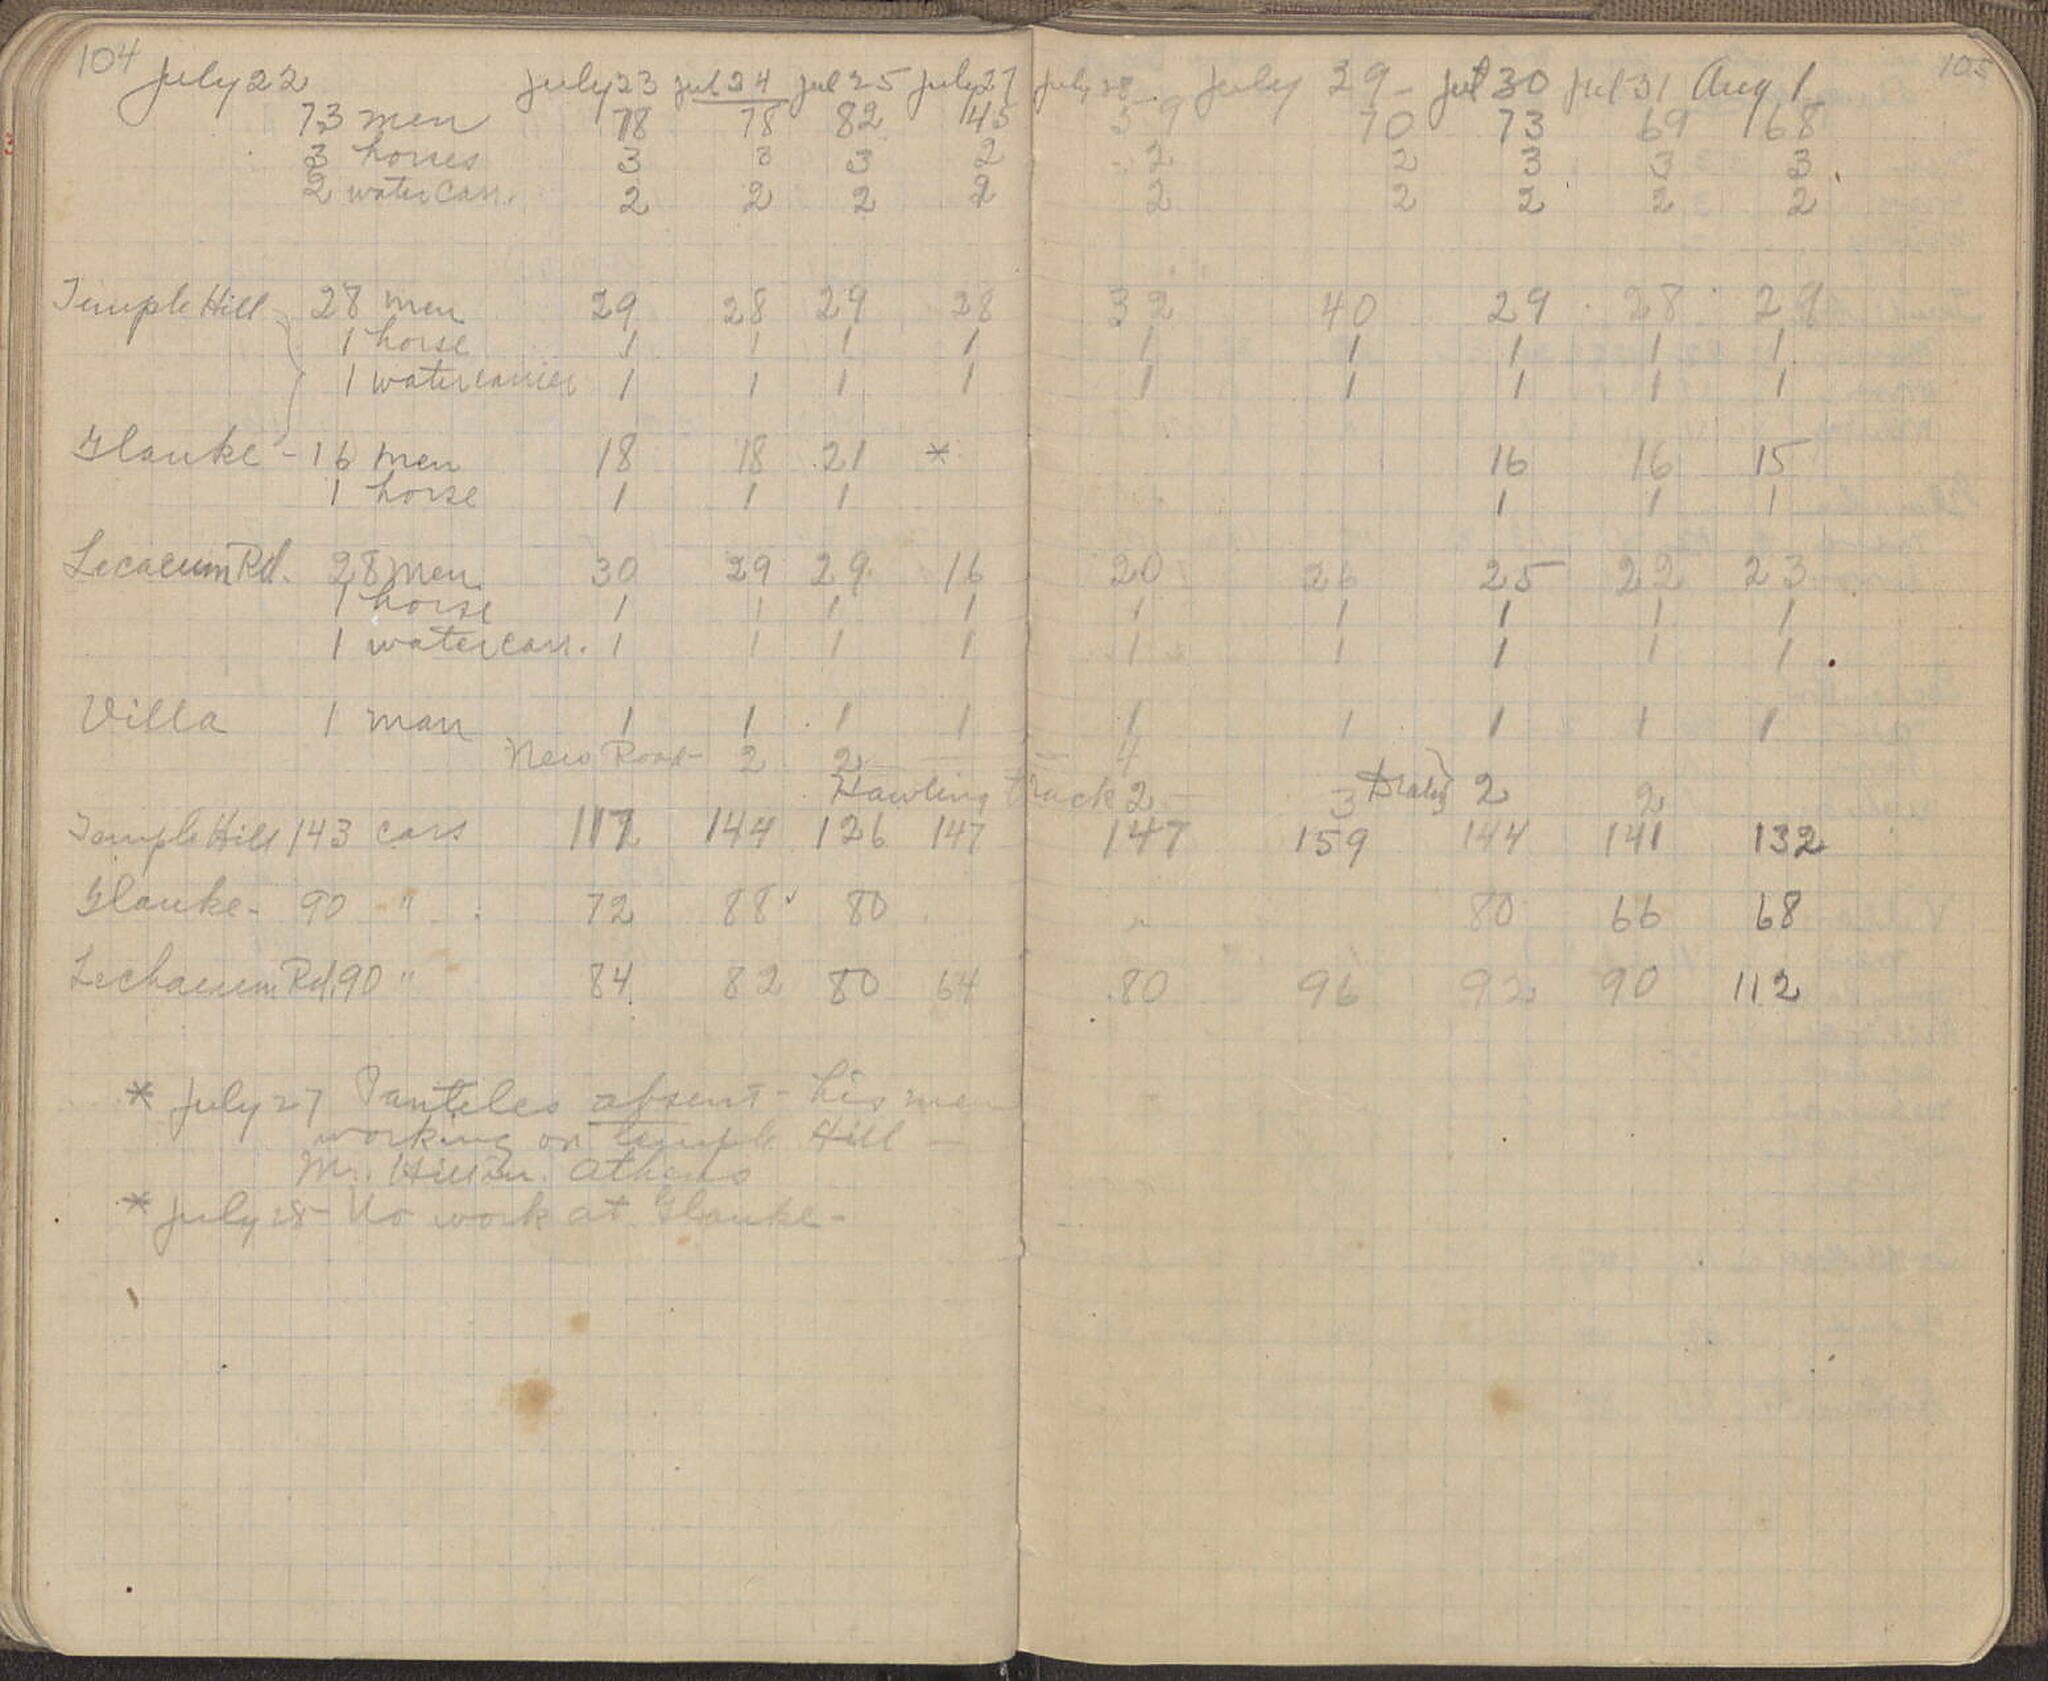 104 105
July 22 July 23 Jul 24 Jul 25 July 27 July 28 July 29 - Jul 30 Jul 31 Aug 1
73 men 78 78 82 45 59 70 73 69 68
3 horses 3 3 3 2 2 2 3 3 3
2 water carr. 2 2 2 2 2 2 2 2 2
Temple Hill 28 men 29 28 29 28 32 40 29 28 29
1 horse 1 1 1 1 1 1 1 1 1
1 watercarrier 1 1 1 1 1 1 1 1 1
Glauke - 16 men 18 18 21 * 16 16 15
1 horse 1 1 1 1 1 1
Lecaeum Rd. 28 men 30 29 29 16 20 26 25 22 23
1 horse 1 1 1 1 1 1 1 1 1
1 watercarr. 1 1 1 1 1 1 1 1 1
Villa 1 man 1 1 1 1 1 1 1 1 1
New Road - 2 2 — — — 4
Hawling track 2 — 3 2 2
Temple Hill 143 cars 117 144 126 147 147 159 144 141 132
Glauke - 90 " 72 88 80 " 80 66 68
Lechaeum Rd. 90 " 84 82 80 64 80 96 92 90 112
* July 27 Panteles absent - his men
working on temple Hill —
Mr. Hill in Athens
* July 28 - No work at Glauke -